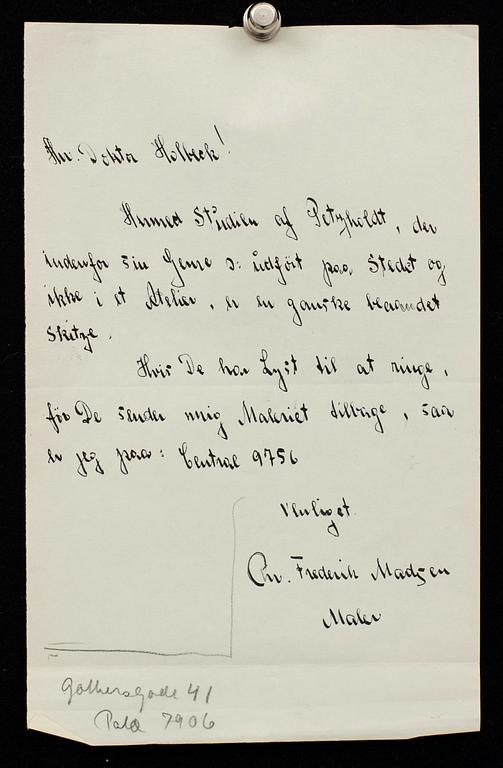 Hr. Doktor Holbeck!
Hermed Studien af Petzholdt, der
indenfor sin Genre ɔ: udført paa Stedet og
ikke i et Atelier, er en ganske beaandet
Skitze.
Hvis De har Lyst til at ringe,
før De sender mig Maleriet tilbage, saa
er jeg paa: Central 9756
Venligst
Chr. Frederik Madsen
Maler
Gothersgade 41
Palæ 7906